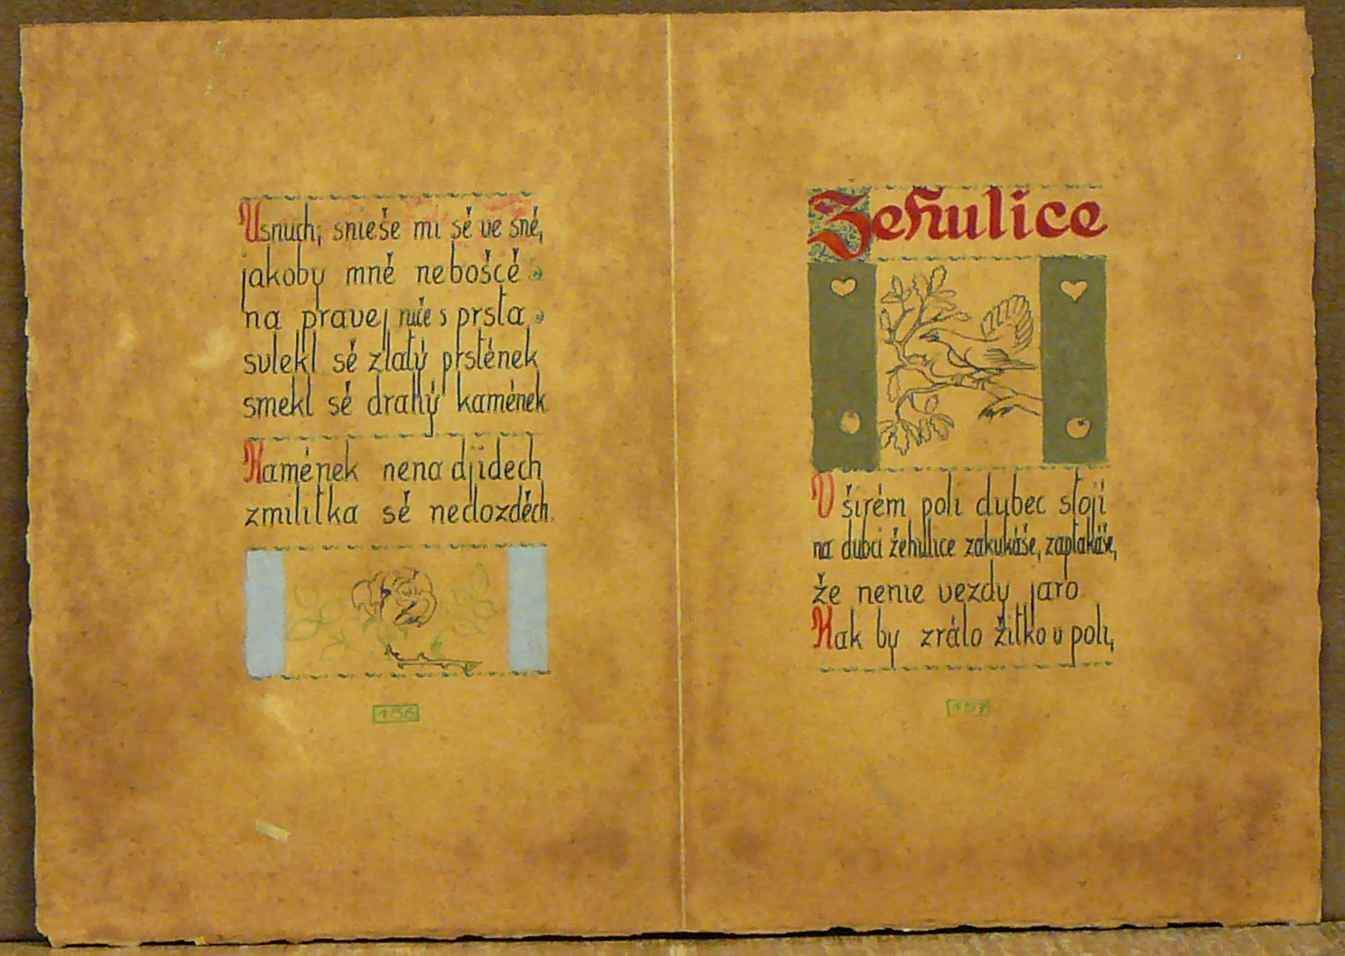 Usnuch, snieše mi sě ve sně,
jakoby mně neboščě
na pravej ruče s prsta
svlekl sě zlatý prstének
smekl sě drahý kamének
Kamének nenadjidech
zmilitka sě nedozděch.
156
Žehulice
V širém poli dubec stojí
na dubci žehulice zakukáše, zaplakáše,
že nenie vezdy jaro
Kak by zrálo žitko v poli,
157